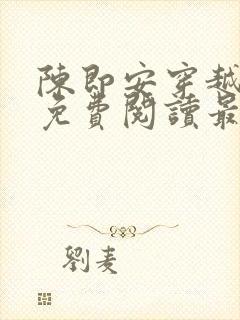 陳即安穿越
免費閱讀最
劉麦